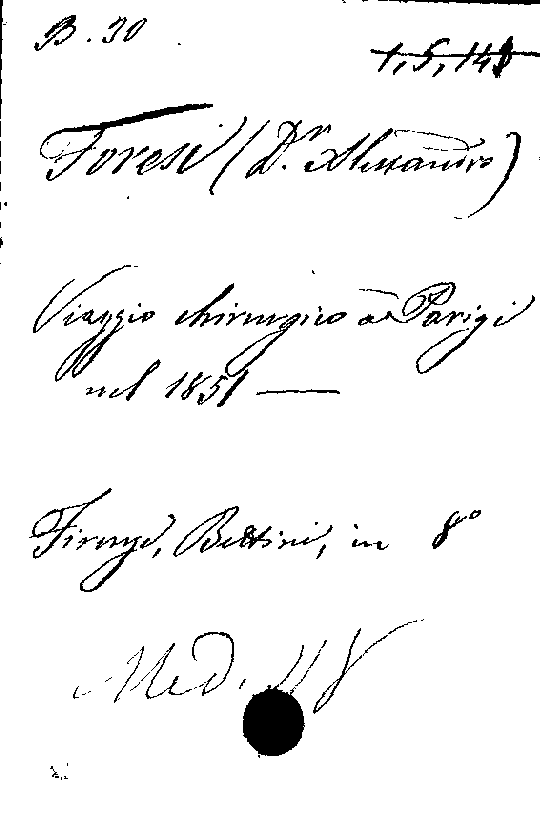 B. 30
1, 5, 148
Foresi (Dr. Alessandro)
Viaggio chirurgico a Parigi
nel 1851 —
Firenze, Bettini, in 8°
Med.